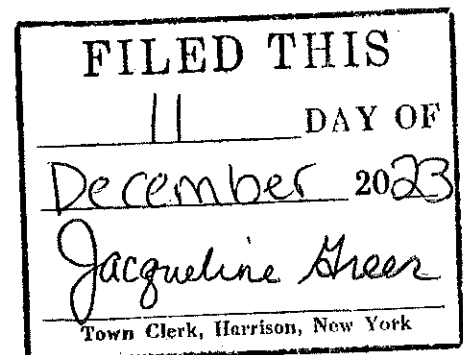 FILED THIS
11 DAY OF
December 2023
Jacqueline Greer
Town Clerk, Harrison, New York